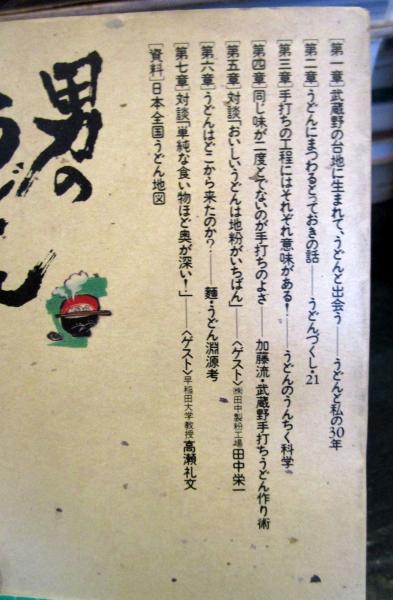 [第一章]武蔵野の台地に生まれて、うどんと出会う――うどんと私の30年
[第二章]うどんにまつわるとっておきの話――うどんづくし・21
[第三章]手打ちの工程にはそれぞれ意味がある!――うどんのうんちく科学
[第四章]同じ味が二度とでないのが手打ちのよさ――加藤流・武蔵野手打ちうどん作り術
[第五章]対談「おいしいうどんは地粉がいちばん」――〈ゲスト〉㈱田中製粉工場 田中栄一
[第六章]うどんはどこから来たのか?――麺・うどん淵源考
[第七章]対談「単純な食い物ほど奥が深い!」――〈ゲスト〉早稲田大学教授 高瀬礼文
[資料]日本全国うどん地図
男の
うどん